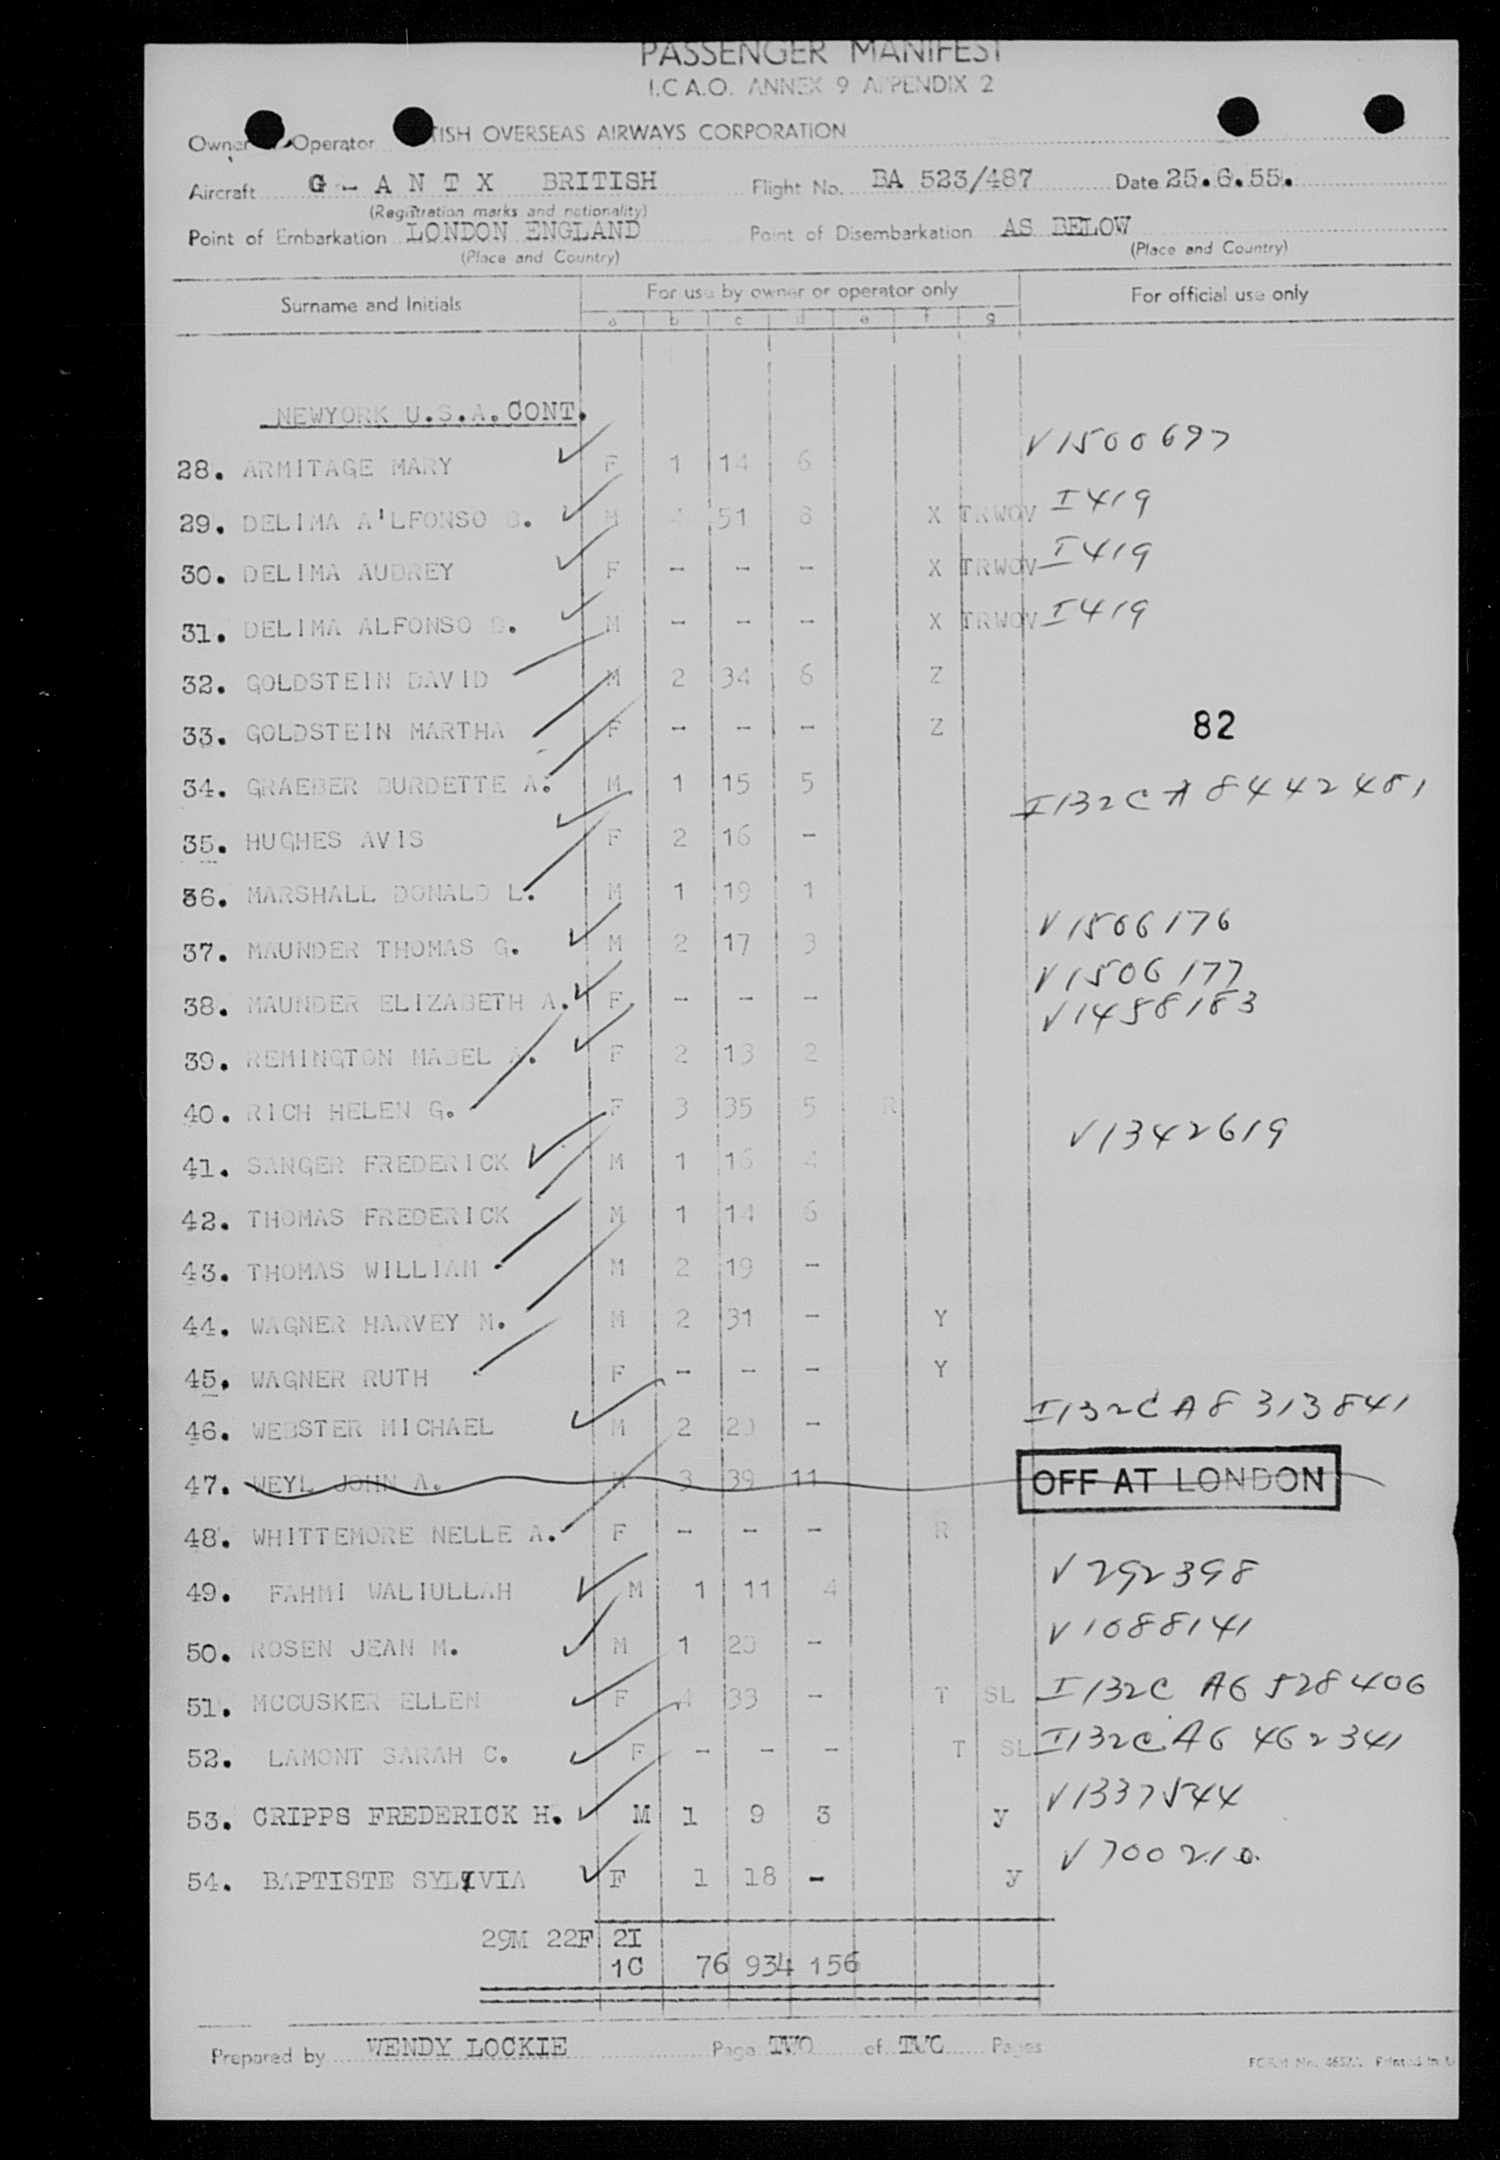 PASSENGER MANIFEST
I.C.A.O. ANNEX 9 APPENDIX 2
Owner Operator TISH OVERSEAS AIRWAYS CORPORATION
Aircraft G - A N T X BRITISH Flight No. BA 523/487 Date 25.6.55.
(Registration marks and nationality)
Point of Embarkation LONDON ENGLAND Point of Disembarkation AS BELOW
(Place and Country) (Place and Country)
Surname and Initials For use by owner or operator only For official use only
a b c d e f g
NEWYORK U.S.A. CONT.
28. ARMITAGE MARY F 1 14 6 V1500697
29. DELIMA A'LFONSO M 51 8 X TRWOV I419
30. DELIMA AUDREY F - - - X TRWOV I419
31. DELIMA ALFONSO M - - - X TRWOV I419
32. GOLDSTEIN DAVID M 2 34 6 Z
33. GOLDSTEIN MARTHA F - - - Z 82
34. GRAEBER BURDETTE A. M 1 15 5 I132C A8442481
35. HUGHES AVIS F 2 16 -
36. MARSHALL DONALD L. M 1 19 1
37. MAUNDER THOMAS G. M 2 17 3 V1506176
38. MAUNDER ELIZABETH A. F - - - V1506177
39. REMINGTON MABEL A. F 2 13 2 V1458183
40. RICH HELEN G. F 3 35 5 R
41. SANGER FREDERICK M 1 16 4 V1342619
42. THOMAS FREDERICK M 1 14 6
43. THOMAS WILLIAM M 2 19 -
44. WAGNER HARVEY M. M 2 31 - Y
45. WAGNER RUTH F - - - Y
46. WEBSTER MICHAEL M 2 20 - I132C A8313841
47. WEYL JOHN A. M 3 39 11 OFF AT LONDON
48. WHITTEMORE NELLE A. F - - - R
49. FAHMI WALIULLAH M 1 11 4 V292398
50. ROSEN JEAN M. M 1 20 - V1088141
51. MCCUSKER ELLEN F 4 33 - T SL I132C A6528406
52. LAMONT SARAH C. F - - - T SL I132C A6462341
53. CRIPPS FREDERICK H. M 1 9 3 y V1337544
54. BAPTISTE SYLVIA F 1 18 - y V700210
29M 22F 2I
1C 76 934 156
Prepared by WENDY LOCKIE Page TWO of TWO Pages
FORM No. Printed in